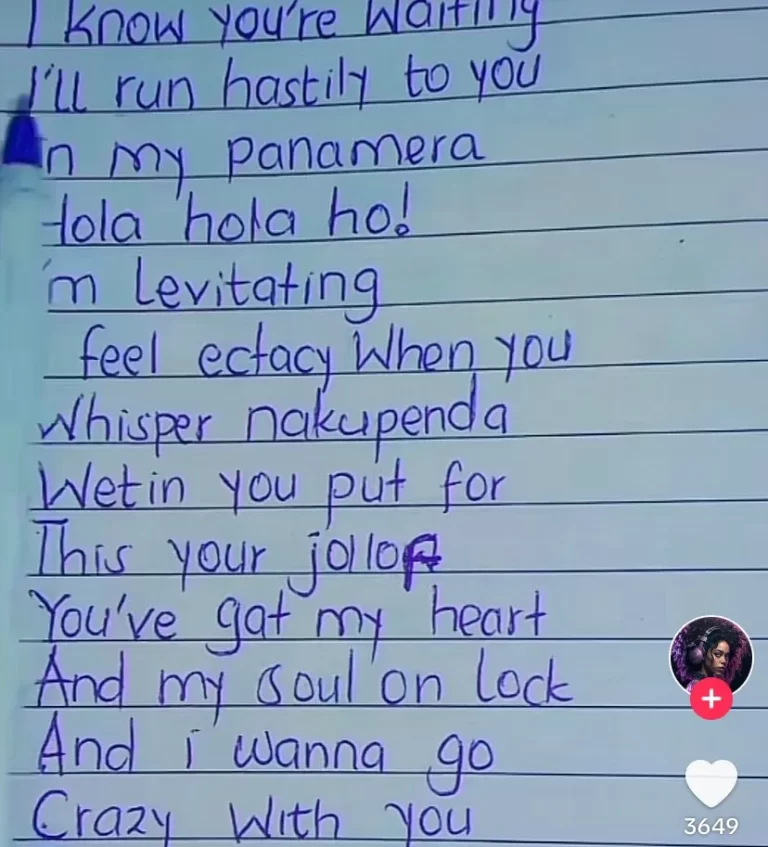 I know you're Waiting
I'll run hastily to you
n my panamera
Hola hola ho!
'm Levitating
feel ectacy When you
Whisper nakupenda
Wetin you put for
This your jollof
You've gat my heart
And my soul on Lock
And i wanna go
Crazy With you
3649